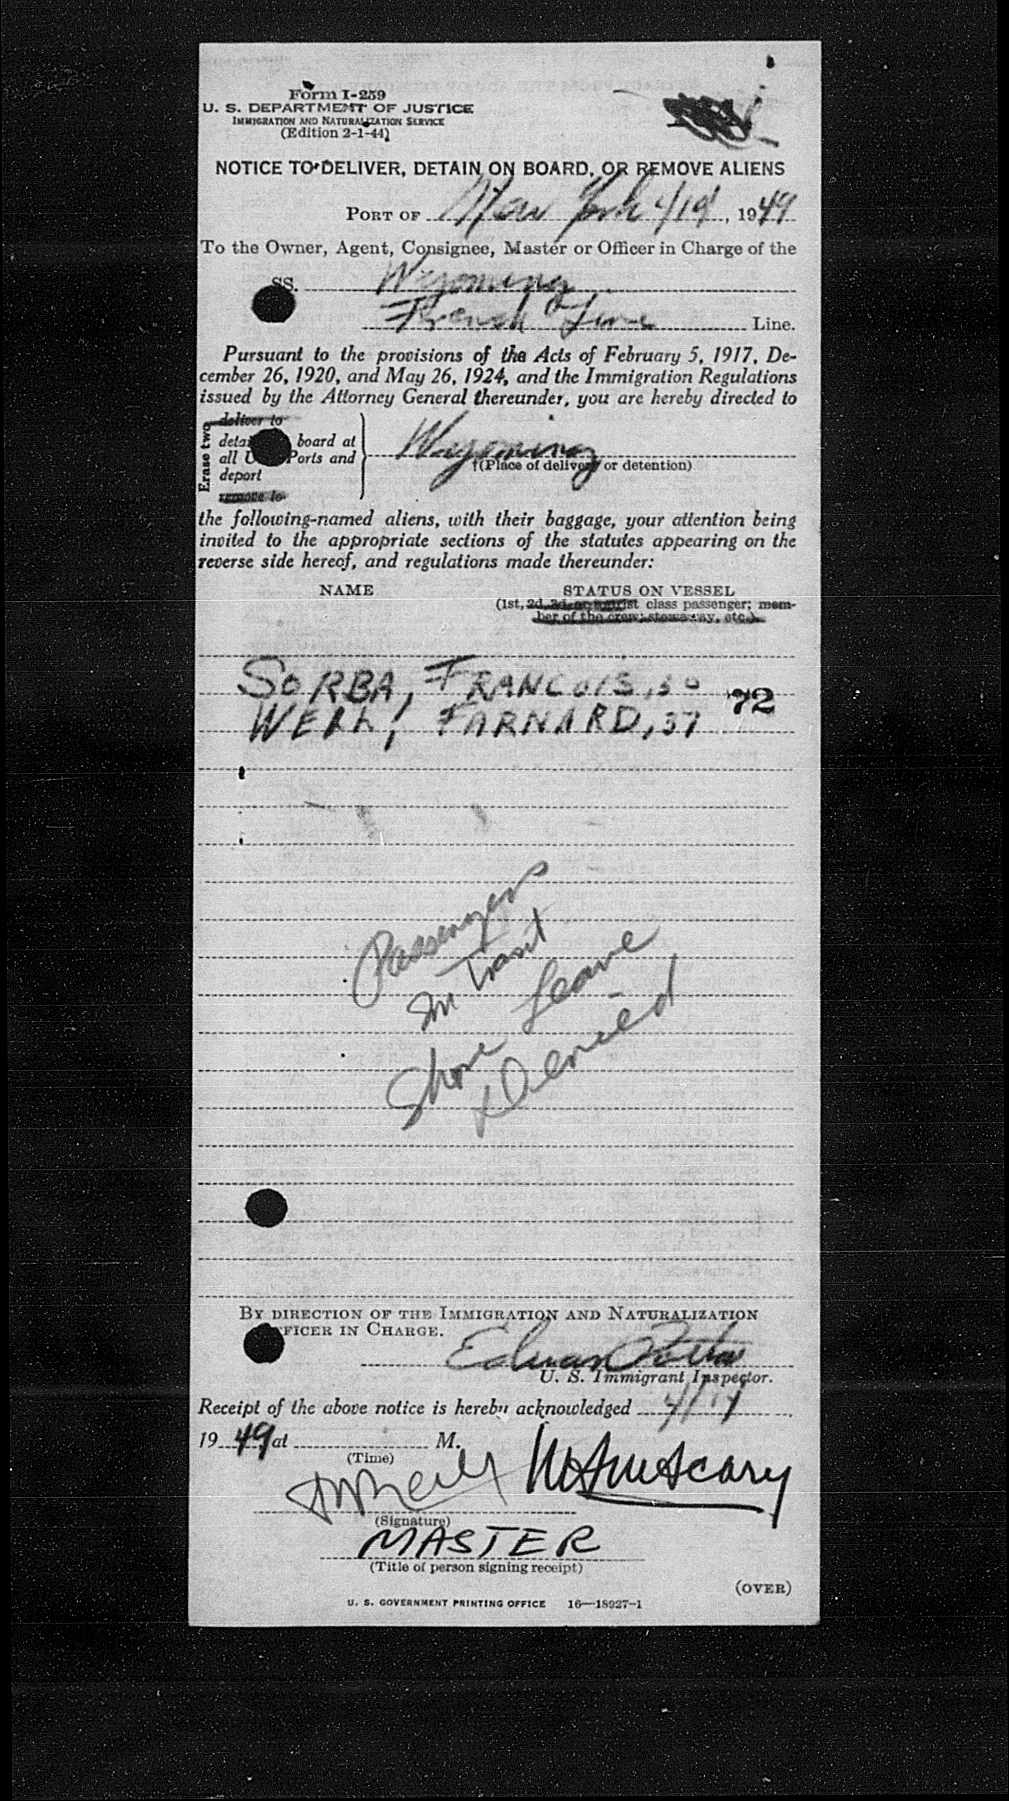 Form I-259
U. S. DEPARTMENT OF JUSTICE
IMMIGRATION AND NATURALIZATION SERVICE
(Edition 2-1-44)
NOTICE TO DELIVER, DETAIN ON BOARD, OR REMOVE ALIENS
PORT OF New York 4/19, 1949
To the Owner, Agent, Consignee, Master or Officer in Charge of the
SS. Wyoming
French Line Line.
Pursuant to the provisions of the Acts of February 5, 1917, De-
cember 26, 1920, and May 26, 1924, and the Immigration Regulations
issued by the Attorney General thereunder, you are hereby directed to
Erase two
deliver to
board at
all Ports and
deport
remove to
Wyoming
†(Place of delivery or detention)
the following-named aliens, with their baggage, your attention being
invited to the appropriate sections of the statutes appearing on the
reverse side hereof, and regulations made thereunder:
NAME STATUS ON VESSEL
(1st, 2d, 3d, or tourist class passenger; mem-
ber of the crew; stowaway, etc.)
SORBA, FRANCOIS, 30 72
FARNARD, 37
Passengers
In Transit
Shore Leave
Denied
BY DIRECTION OF THE IMMIGRATION AND NATURALIZATION
OFFICER IN CHARGE.
U. S. Immigrant Inspector.
Receipt of the above notice is hereby acknowledged 4/19
1949 at M.
(Time)
(Signature)
MASTER
(Title of person signing receipt)
(OVER)
U. S. GOVERNMENT PRINTING OFFICE 16—18927-1